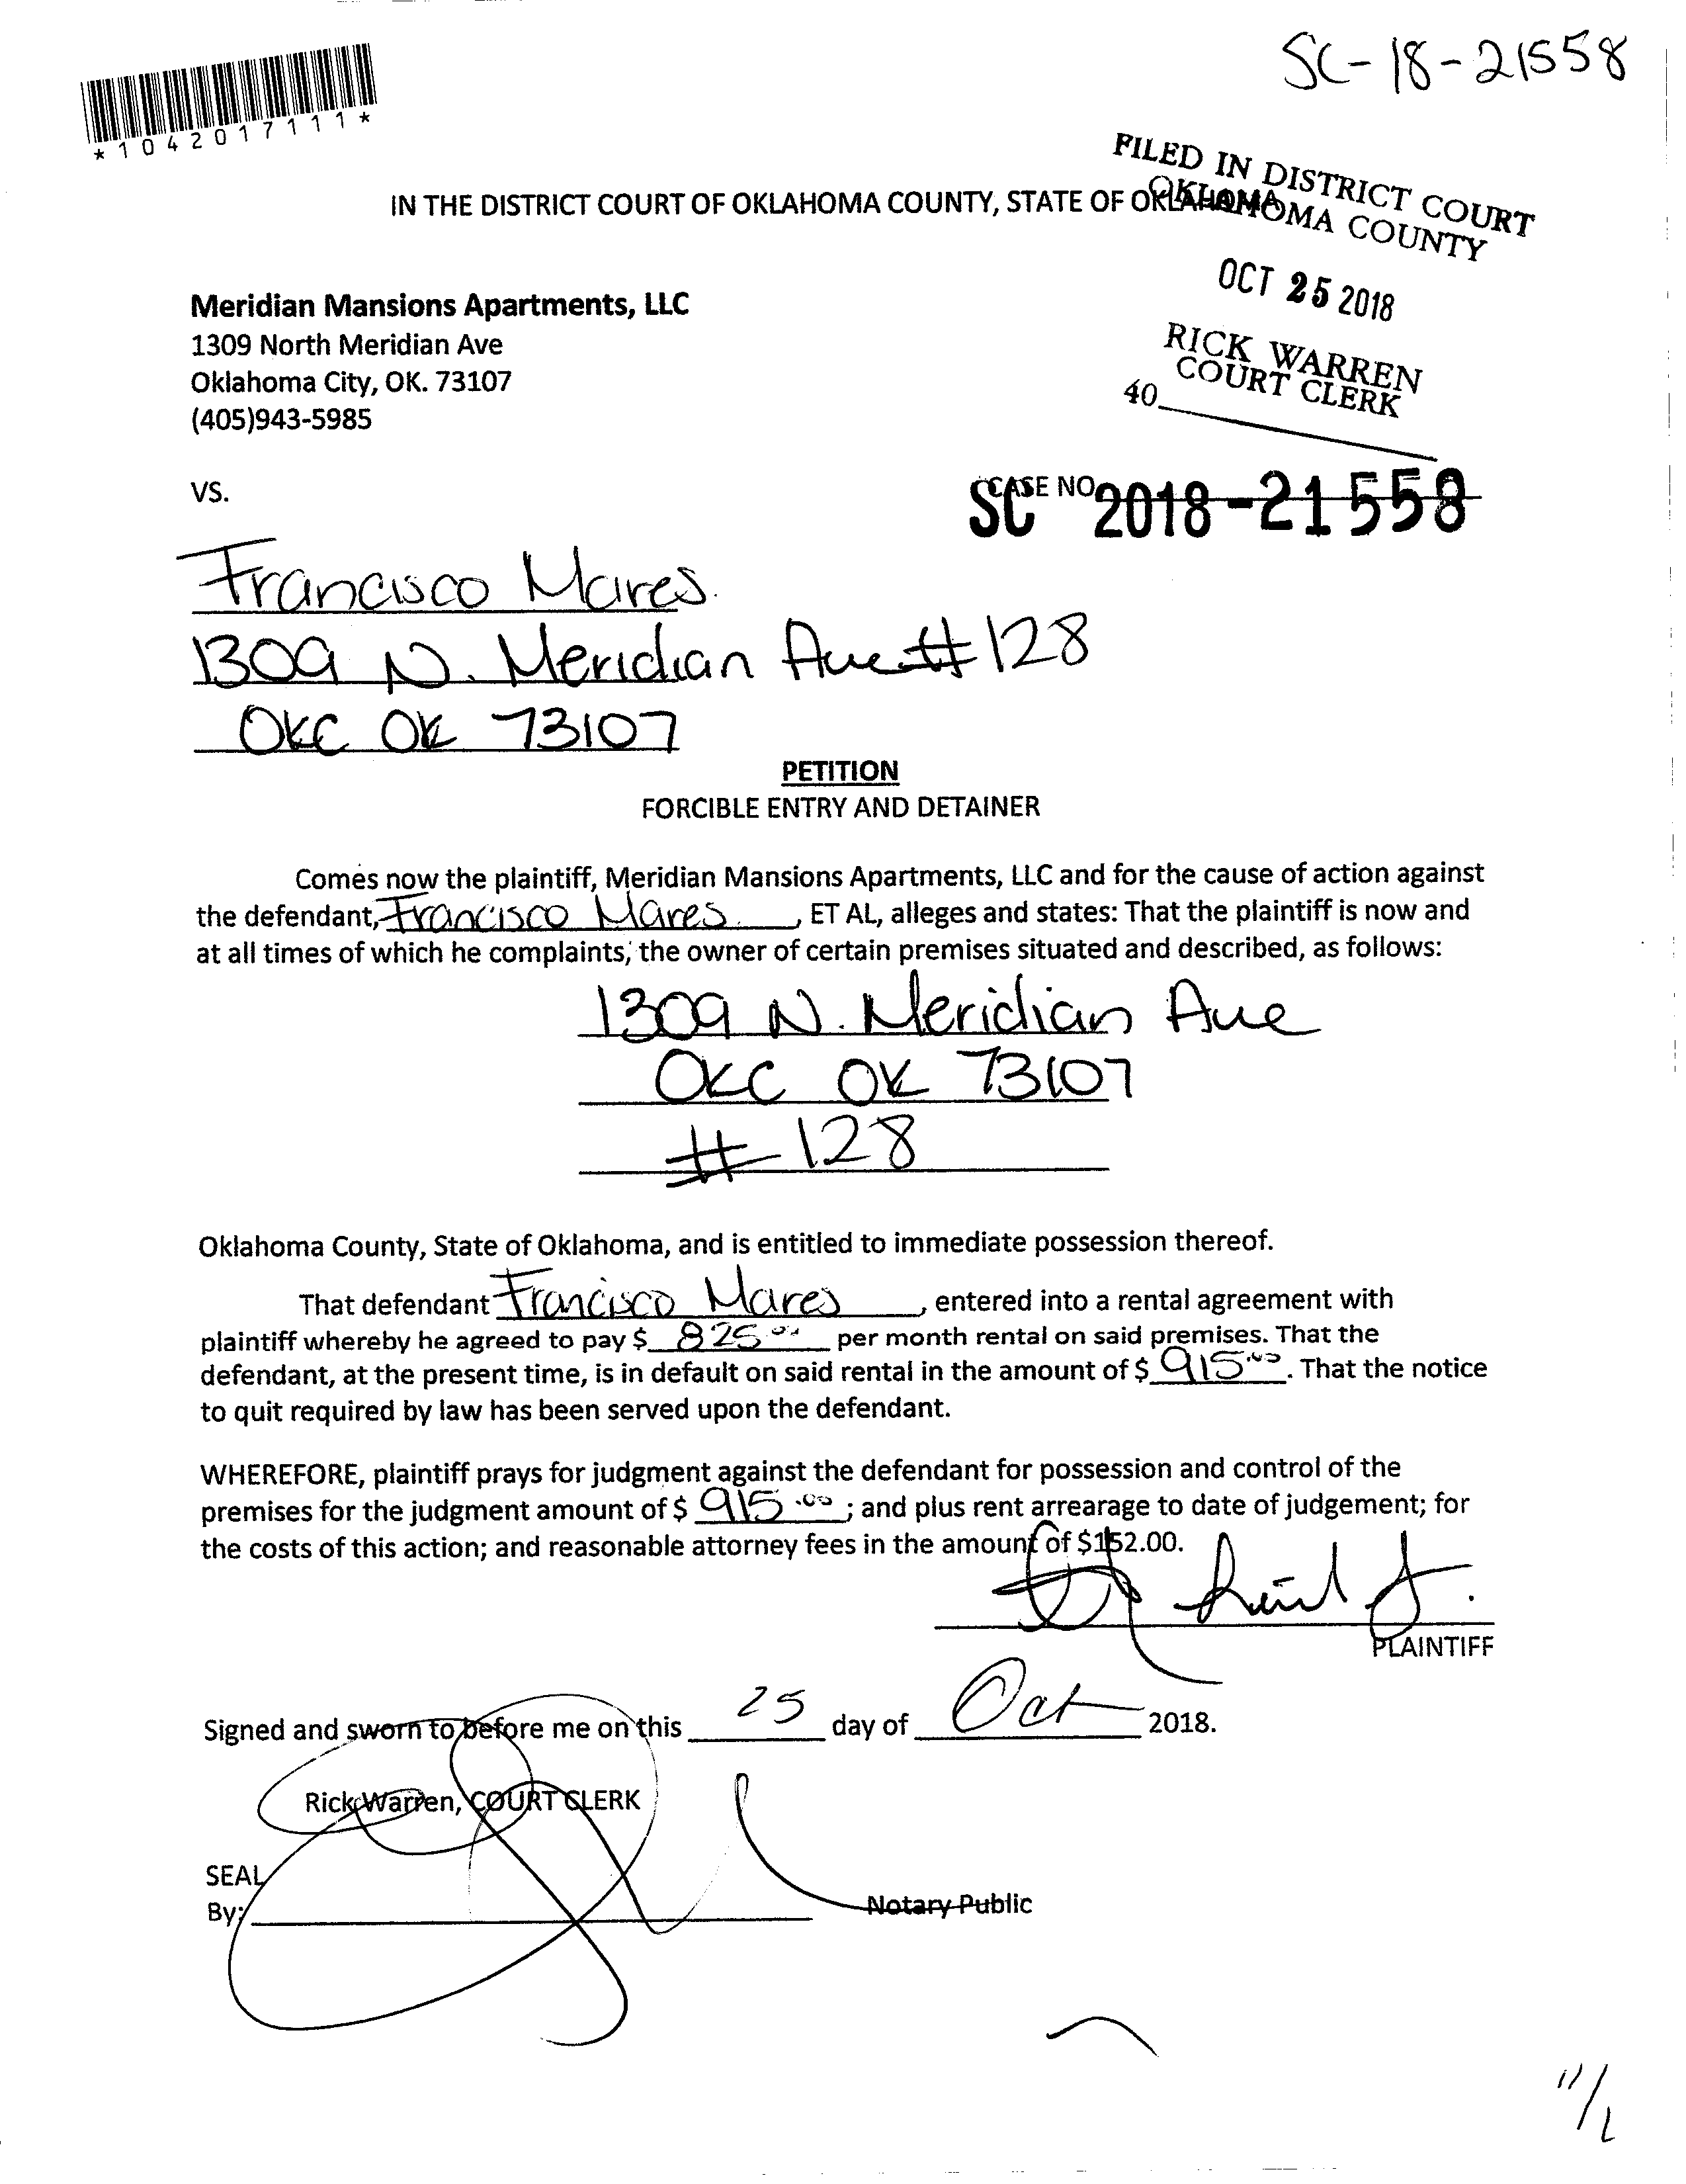 SC-18-21558
*1042017111*
FILED IN DISTRICT COURT
OKLAHOMA COUNTY
IN THE DISTRICT COURT OF OKLAHOMA COUNTY, STATE OF OKLAHOMA
OCT 25 2018
RICK WARREN
COURT CLERK
40
Meridian Mansions Apartments, LLC
1309 North Meridian Ave
Oklahoma City, OK. 73107
(405)943-5985
VS.
CASE NO
SC 2018-21558
Francisco Mares.
1309 N. Meridian Ave #128
OKC OK 73107
PETITION
FORCIBLE ENTRY AND DETAINER
Comes now the plaintiff, Meridian Mansions Apartments, LLC and for the cause of action against
the defendant, Francisco Mares. , ET AL, alleges and states: That the plaintiff is now and
at all times of which he complaints, the owner of certain premises situated and described, as follows:
1309 N. Meridian Ave
OKC OK 73107
# 128
Oklahoma County, State of Oklahoma, and is entitled to immediate possession thereof.
That defendant Francisco Mares , entered into a rental agreement with
plaintiff whereby he agreed to pay $ 825.00 per month rental on said premises. That the
defendant, at the present time, is in default on said rental in the amount of $ 915.00. That the notice
to quit required by law has been served upon the defendant.
WHEREFORE, plaintiff prays for judgment against the defendant for possession and control of the
premises for the judgment amount of $ 915.00 ; and plus rent arrearage to date of judgement; for
the costs of this action; and reasonable attorney fees in the amount of $152.00.
PLAINTIFF
Signed and sworn to before me on this 25 day of Oct 2018.
Rick Warren, COURT CLERK
SEAL
By:
Notary Public